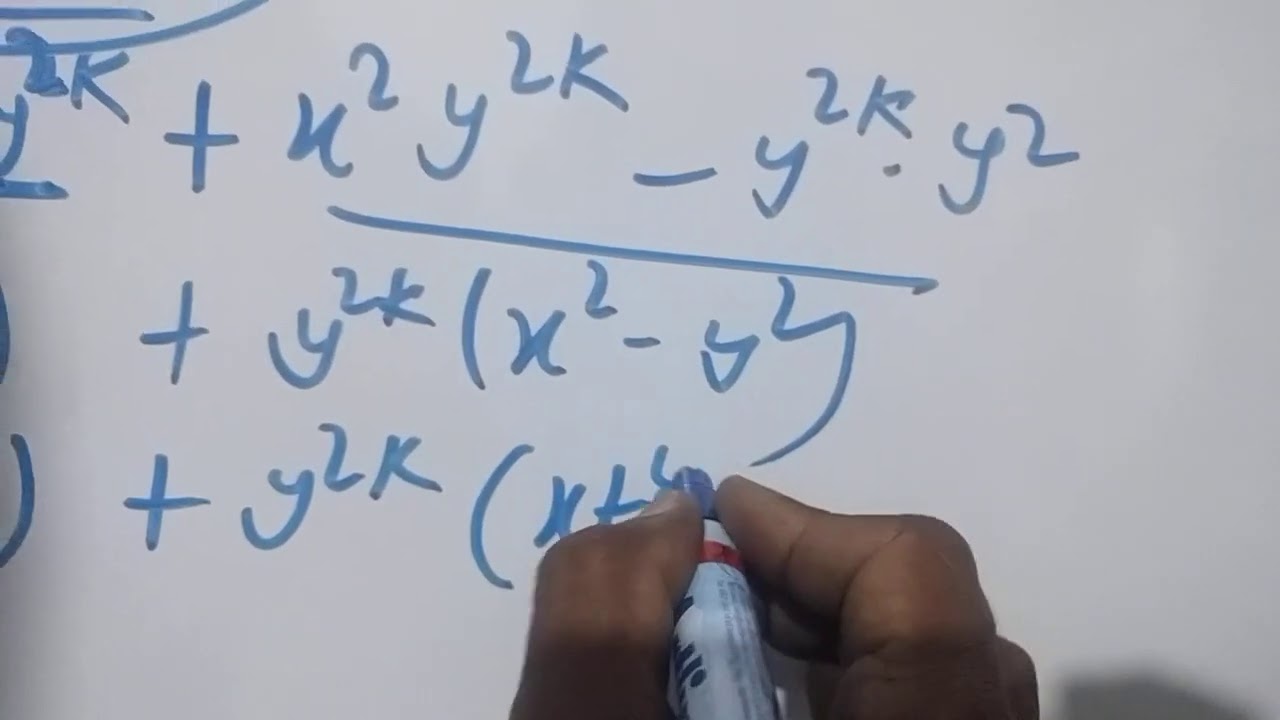 y^{2k} + x² y^{2k} - y^{2k} · y²
+ y^{2k} (x² - y²)
) + y^{2k} (x+y